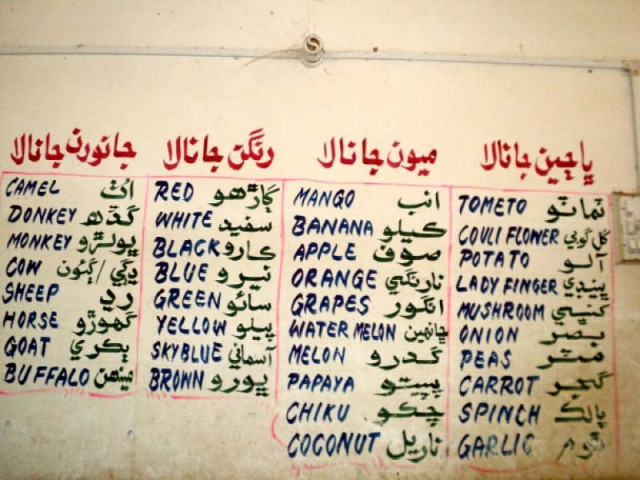 جانورن جا نالا
CAMEL اُٺ
DONKEY گڏھ
MONKEY ڀولڙو
COW ڍڳي / ڳئون
SHEEP رڍ
HORSE گھوڙو
GOAT ٻڪري
BUFFALO مينهن
رنگن جا نالا
RED ڳاڙهو
WHITE سفيد
BLACK ڪارو
BLUE نيرو
GREEN سائو
YELLOW پيلو
SKYBLUE آسماني
BROWN ڀورو
ميون جا نالا
MANGO انب
BANANA ڪيلو
APPLE صوف
ORANGE نارنگي
GRAPES انگور
WATER MELON ڇانهين
MELON گدرو
PAPAYA پپيتو
CHIKU چڪو
COCONUT ناريل
ڀاڄين جا نالا
TOMETO ٽماٽو
COULI FLOWER گل گوبي
POTATO آلو
LADY FINGER ڀينڊي
MUSHROOM کنڀي
ONION بصر
PEAS مٽر
CARROT گجر
SPINCH پالڪ
GARLIC ٿوم